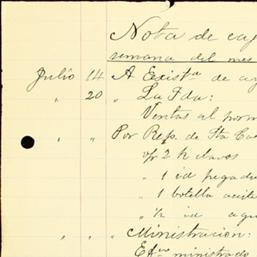 Nota de ca
semana del mes
Julio 14 A Exist.ª de a
" 20 " La Fda:
Ventas al
" " Por Rep. de Sta
o/r 2 k clavos
" 1 id pegadu
" 1 botella aceite
" ½ id agu
" " Ministracion:
ministrado